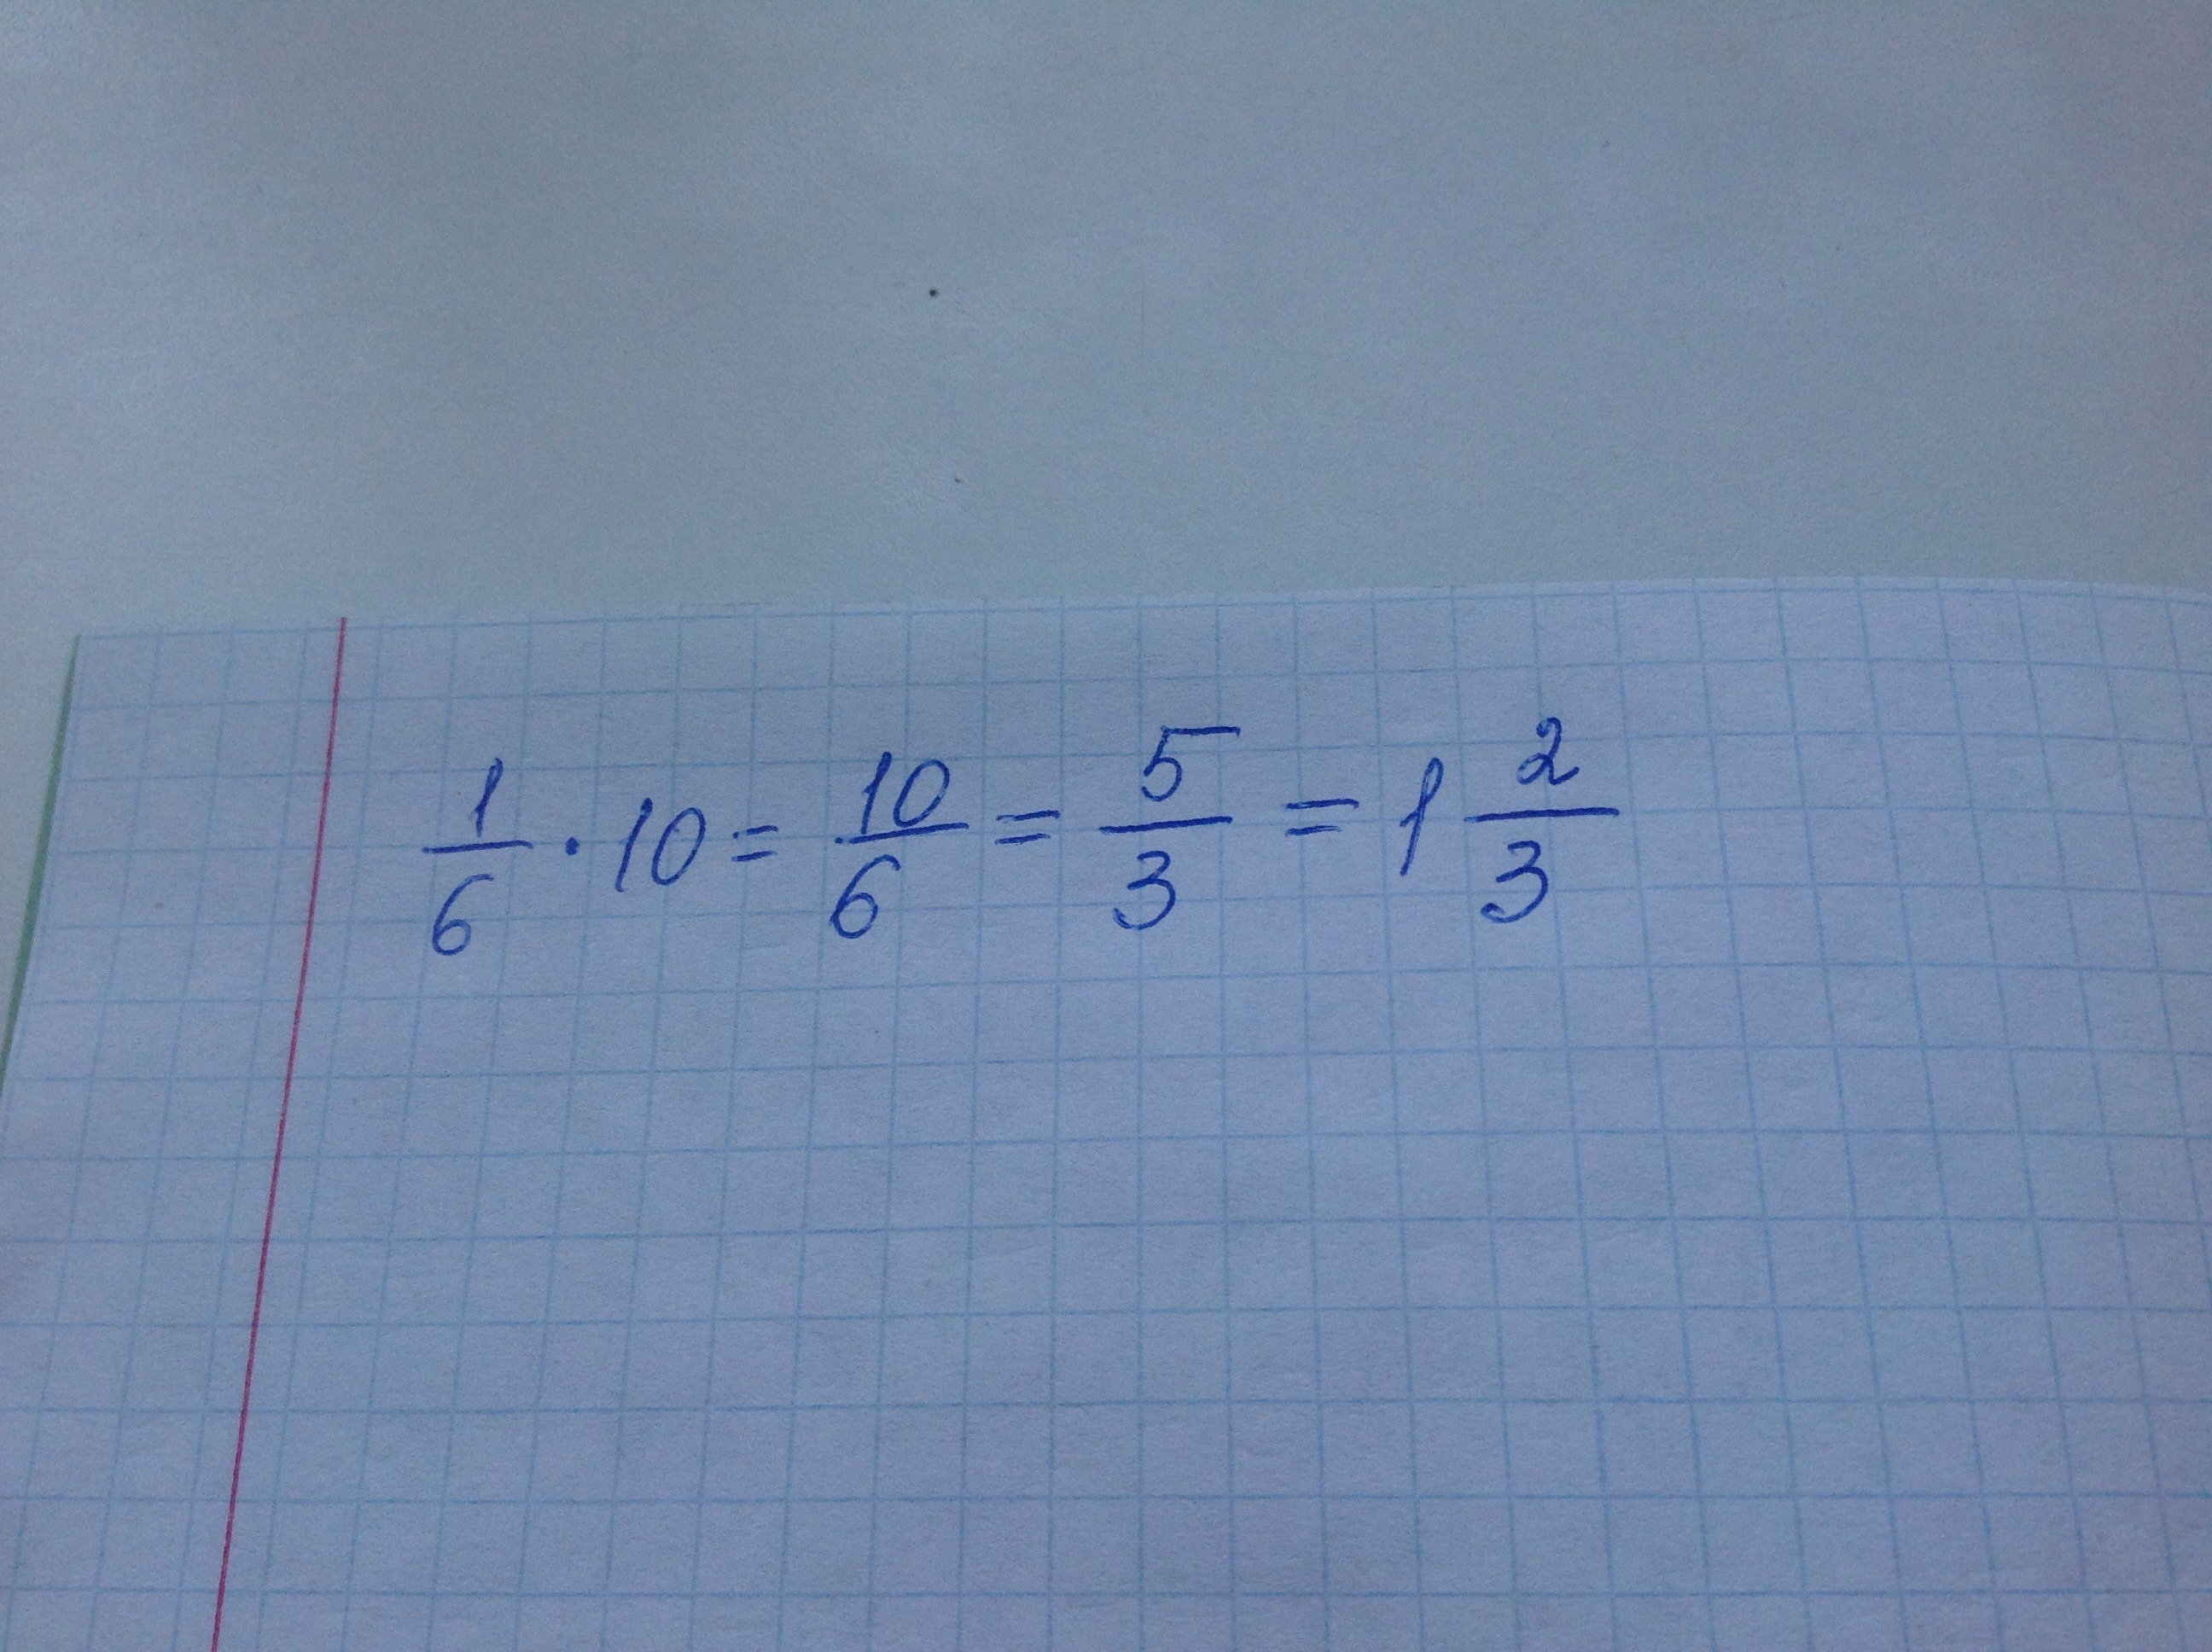 1/6 · 10 = 10/6 = 5/3 = 1 2/3